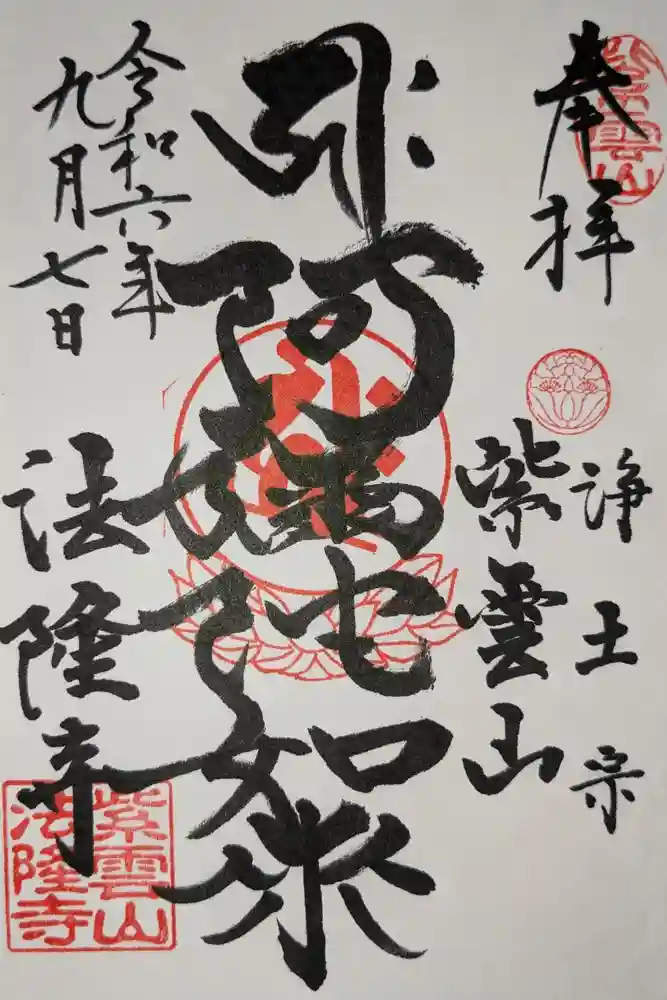 奉拝
紫雲山
浄土宗
紫雲山
阿彌陀如来
令和六年
九月七日
法隆寺
紫雲山
法隆寺